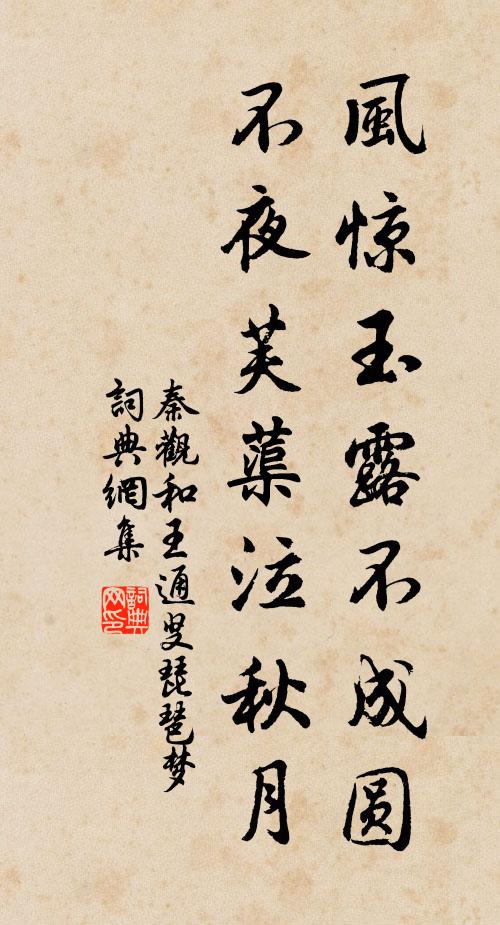 風惊玉露不成圆
不夜芙蕖泣秋月
秦觀和王通叟琵琶梦
詞典網集
詞典网印